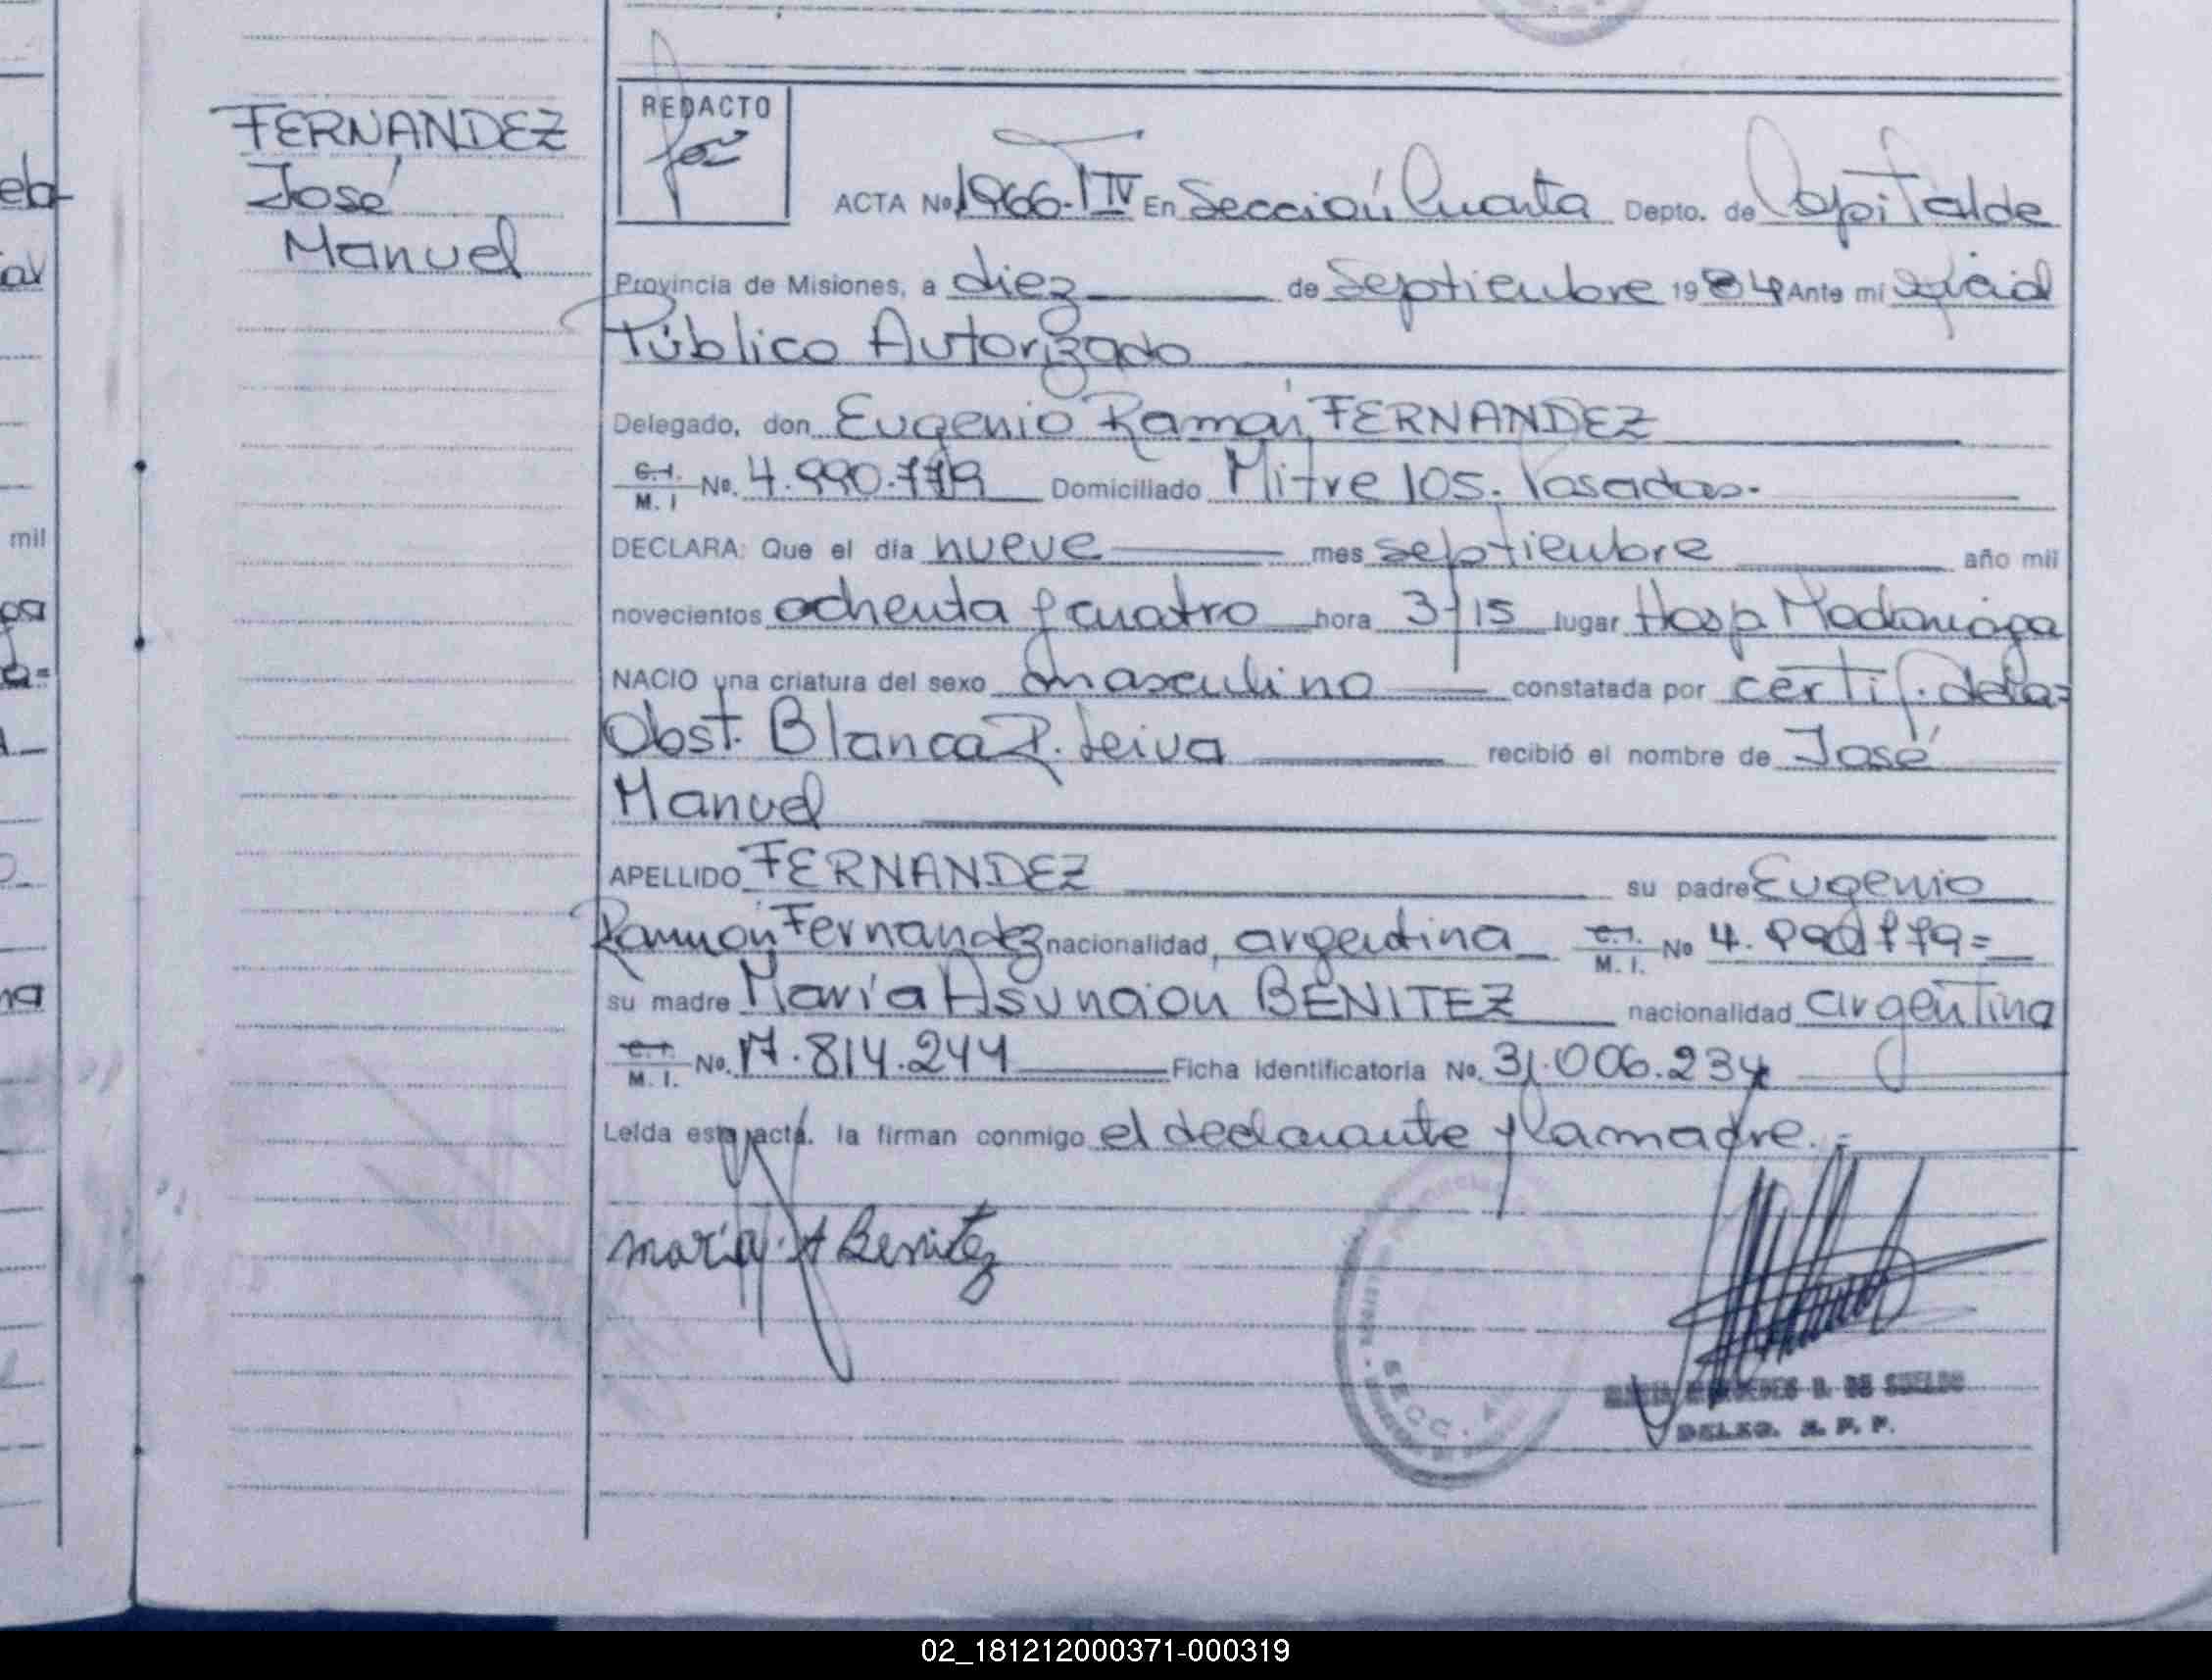 FERNANDEZ
José
Manuel
REDACTO
ACTA No 1966-T IV En Sección Cuarta Depto. de Capital de
Provincia de Misiones, a diez de Septiembre 1984 Ante mi oficial
Público Autorizado
Delegado, don Eugenio Ramón FERNANDEZ
C.I. M. I No. 4.990.779 Domiciliado Mitre 105. Posadas.
DECLARA: Que el día nueve mes septiembre año mil
novecientos ochenta y cuatro hora 3/15 lugar Hosp Madariaga
NACIO una criatura del sexo masculino constatada por certif. de la=
Obst. Blanca P. Leiva recibió el nombre de José
Manuel
APELLIDO FERNANDEZ su padre Eugenio
Ramón Fernandez nacionalidad, argentina C.I. M. I. No 4.990.779=
su madre María Asunción BENITEZ nacionalidad argentina
C.I. M. I. No. 17.814.244 Ficha identificatoria No. 31.006.234
Leída esta acta. la firman conmigo el declarante y la madre.=
maría A Benitez
SECC.
MERCEDES B. DE SUELDO
DELEG. R. P. P.
eb-
al
mil
pa
a=
na
02_181212000371-000319